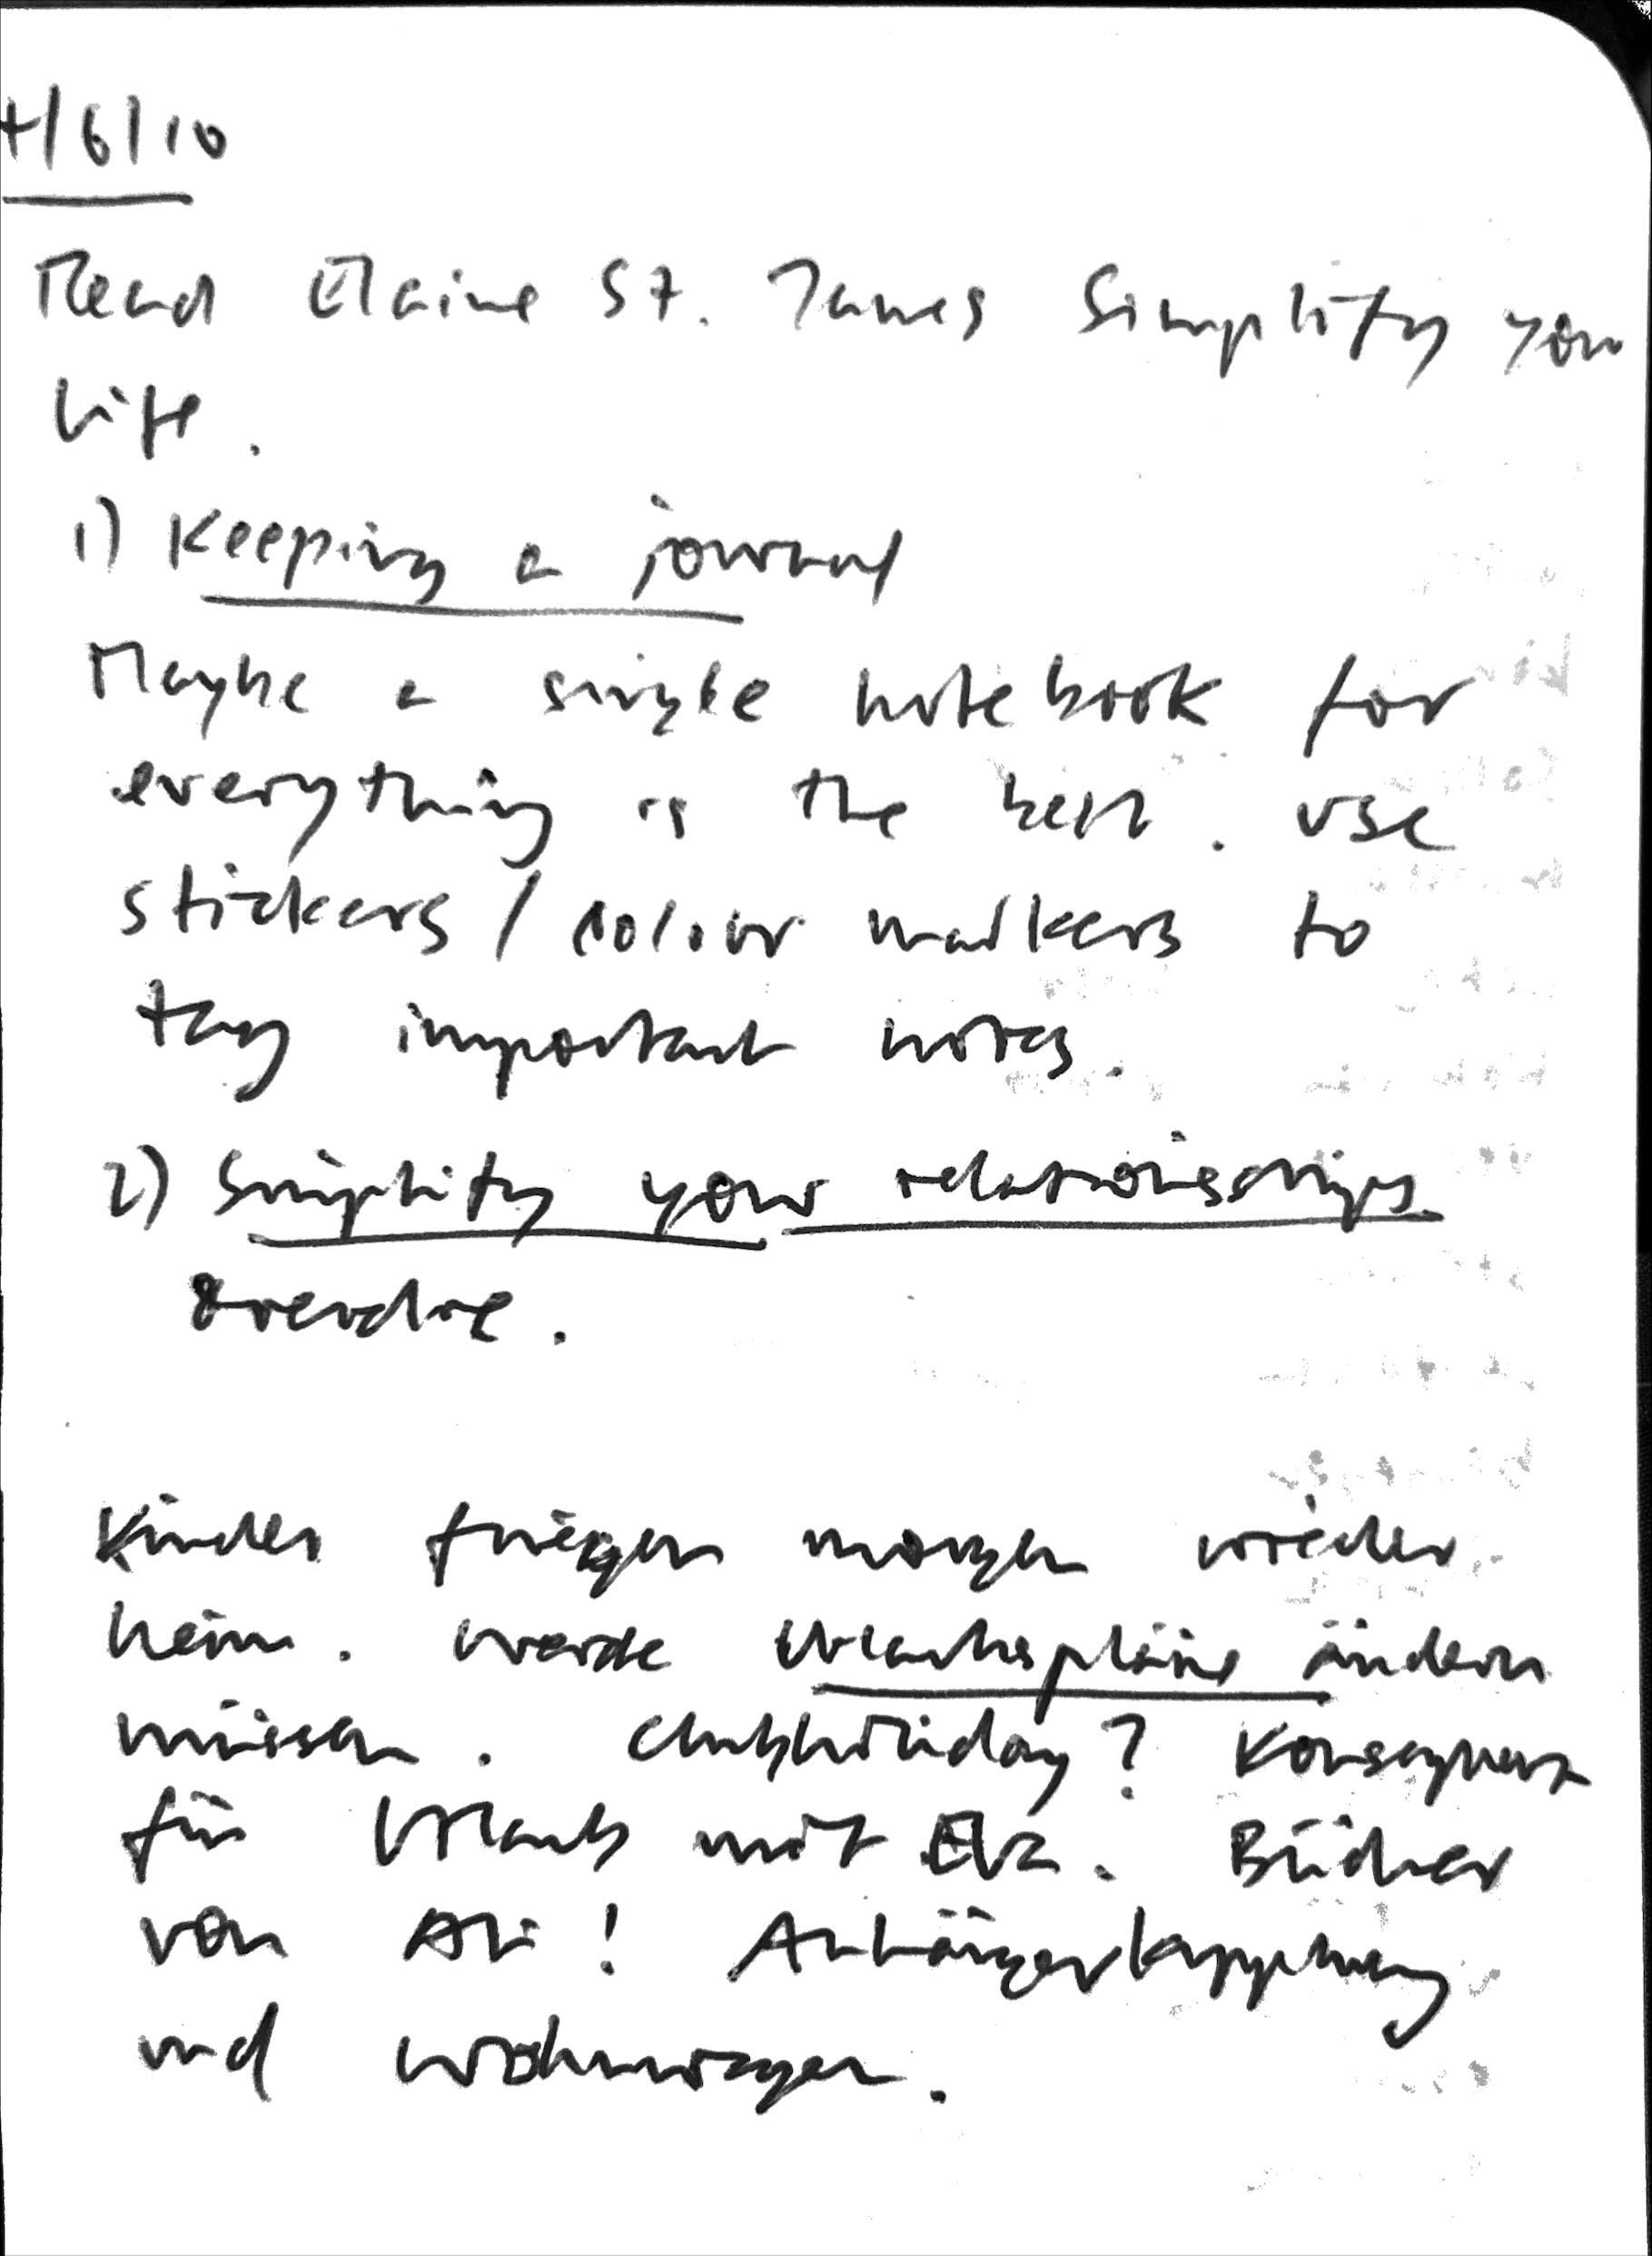 4/6/10
Read Elaine St. James Simplify your
life.
1) Keeping a journal
Maybe a single notebook for
everything is the best. Use
stickers / colour markers to
tag important notes.
2) Simplify your relationships
overdue.
Kinder fliegen morgen wieder
heim. Werde Urlaubspläne ändern
müssen. Clubholiday? Konsequenz
für Urlaub mit . Bücher
von Ali! Anhängerkupplung
und Wohnwagen.